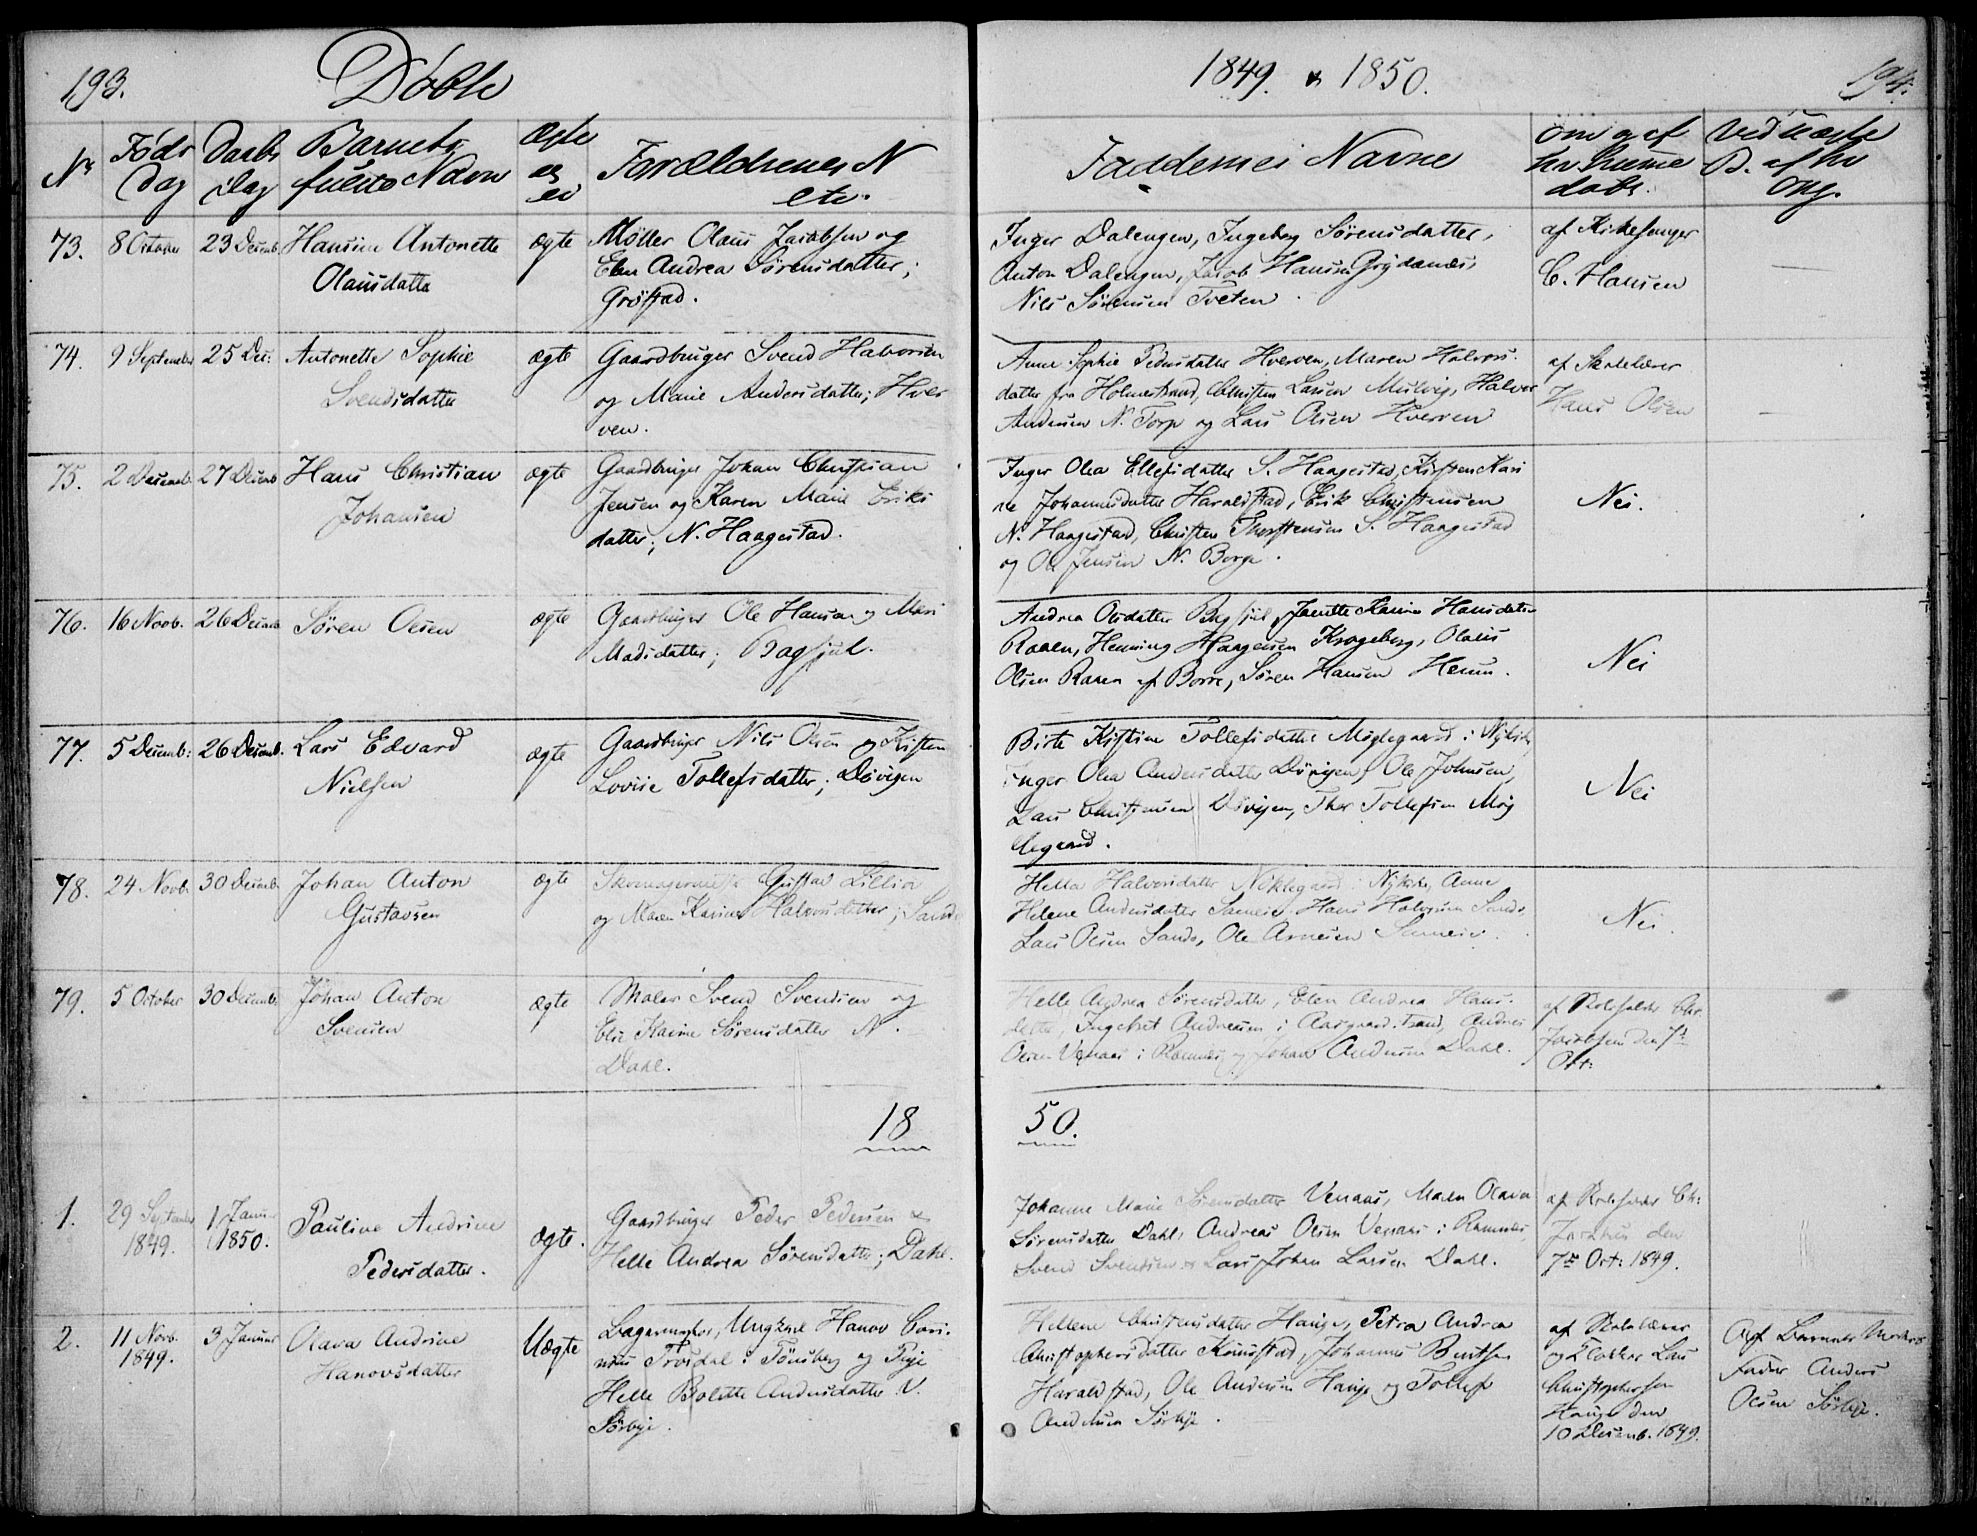 193.
Döbte
1849. & 1850.
194.
Nr
Föds
Dag
Daabs
dag
Barnets
fulde Navn
Ægte
el
ei
Forældrenes N
etc.
Faddernes Navne
om og af
hv. hieme
døbt.
ved uægte
B. af hv
Ang.
73.
8 October
23 Decemb.
Hansine Antonette
Olausdatter
ægte
Møller Olaus Jacobsen og
Elen Andrea Sörensdatter;
Gröstad.
Inger Dalengen, Ingeborg Sörensdatter,
Anton Dalengen, Jacob Hansen
Nils Sörensen Tveten.
af Kirkesanger
C. Hansen
—
74.
9 September
25 Dec:
Antonette Sophie
Svendsdatter
ægte
Gaardbruger Svend Halvorsen
og Marie Andersdatter; Hver
ven.
Anne Sophie Pedersdatter Hverven, Maren Halvors-
datter fra Holmestrand, Christen Larsen Mulvig, Halvor
Andersen N. Torp og Lars Olsen Hverven
af Skolelærer
Hans Olsen
—
75.
2 Decemb.
27 Decemb
Hans Christian
Johansen
ægte
Gaardbruger Johan Christian
Jensen og Karen Marie Eriks
datter; N. Haagestad.
Inger Olea Ellefsdatter S. Haagestad, Kirsten Kari
ne Johannesdatter Haraldstad, Erik Christensen
N. Haagestad, Christen Thorstensen S. Haagestad
og Ole Jensen N. Borge.
Nei.
76.
16 Novb.
26 Decemb
Sören Olsen
ægte
Gaardbruger Ole Hansen og Mari
Madsdatter; Bagsjul.
Andrea Olsdatter Bagsjul, Karine Hansdatter
Raaen, Henning Haagensen Krogeberg, Olaus
Olsen Raaen af Borre, Sören Hansen Heum.
Nei
77.
5 Decemb:
26 Decemb.
Lars Edvard
Nielsen
ægte
Gaardbruger Nils Olsen og Kirsten
Lovise Tollefsdatter; Dövigen
Birte Kirstine Tollefsdatter Möglegaard i Nykirke,
Inger Olea Andersdatter Dövigen, Ole Johnsen,
Lars Christensen Dövigen, Thor Tollefsen Mög
legaard.
Nei
78.
24 Novb.
30 Decemb
Johan Anton
Gustavsen
ægte
Skomagersvend Gustav Lillia
og Maren Karine Halvorsdatter; Sande
Helle Halvorsdatter i Nykirke, Anne
Helene Andersdatter Sameie, Hans Halvorsen Sande,
Lars Olsen Sande, Ole Arnesen Sameie.
Nei.
79.
5 October
30 Decemb
Johan Anton
Svensen
ægte
Maler Svend Svendsen og
Else Karine Sörensdatter N.
Dahl.
Helle Andrea Sörensdatter, Elen Andrea Hans-
datter, Ingebret Andreasen i Aasgaardstrand, Andreas
Olsen Venaas i Ramnes og Johan Andersen Dahl.
af Skoleholder Chr.
Jacobsen den 7de
Oct:
18
50.
1.
29 September
1849.
1 Januar
1850.
Pauline Andrine
Pedersdatter.
ægte.
Gaardbruger Peder Pedersen &
Helle Andrea Sörensdatter; Dahl.
Johanne Marie Sörensdatter Venaas, Maren Olava
Sörensdatter Dahl, Andreas Olsen Venaas i Ramnes,
Svend Svendsen & Lars Johan Larsen Dahl.
af Skoleholder Ch:
Jacobsen den
7de Oct: 1849.
2.
11 Novb.
1849.
3 Januar
Olava Andrine
Hanovsdatter
Uægte
Bagermester, Ungkarl Hanov
Trosdal i Tönsberg og Pige
Helle Bolette Andersdatter N.
Sörbye.
Hellene Christensdatter Hauge, Petra Andrea
Christophersdatter Kimestad, Johannes Berntsen
Haraldstad, Ole Andersen Hauge og Tollef
Andersen Sörbye.
af Skolelærer
og Klokker Lars
Christophersen
Hauge den
10 Decemb. 1849.
Af Barnets Moders
Fader Anders
Olsen Sörbye.